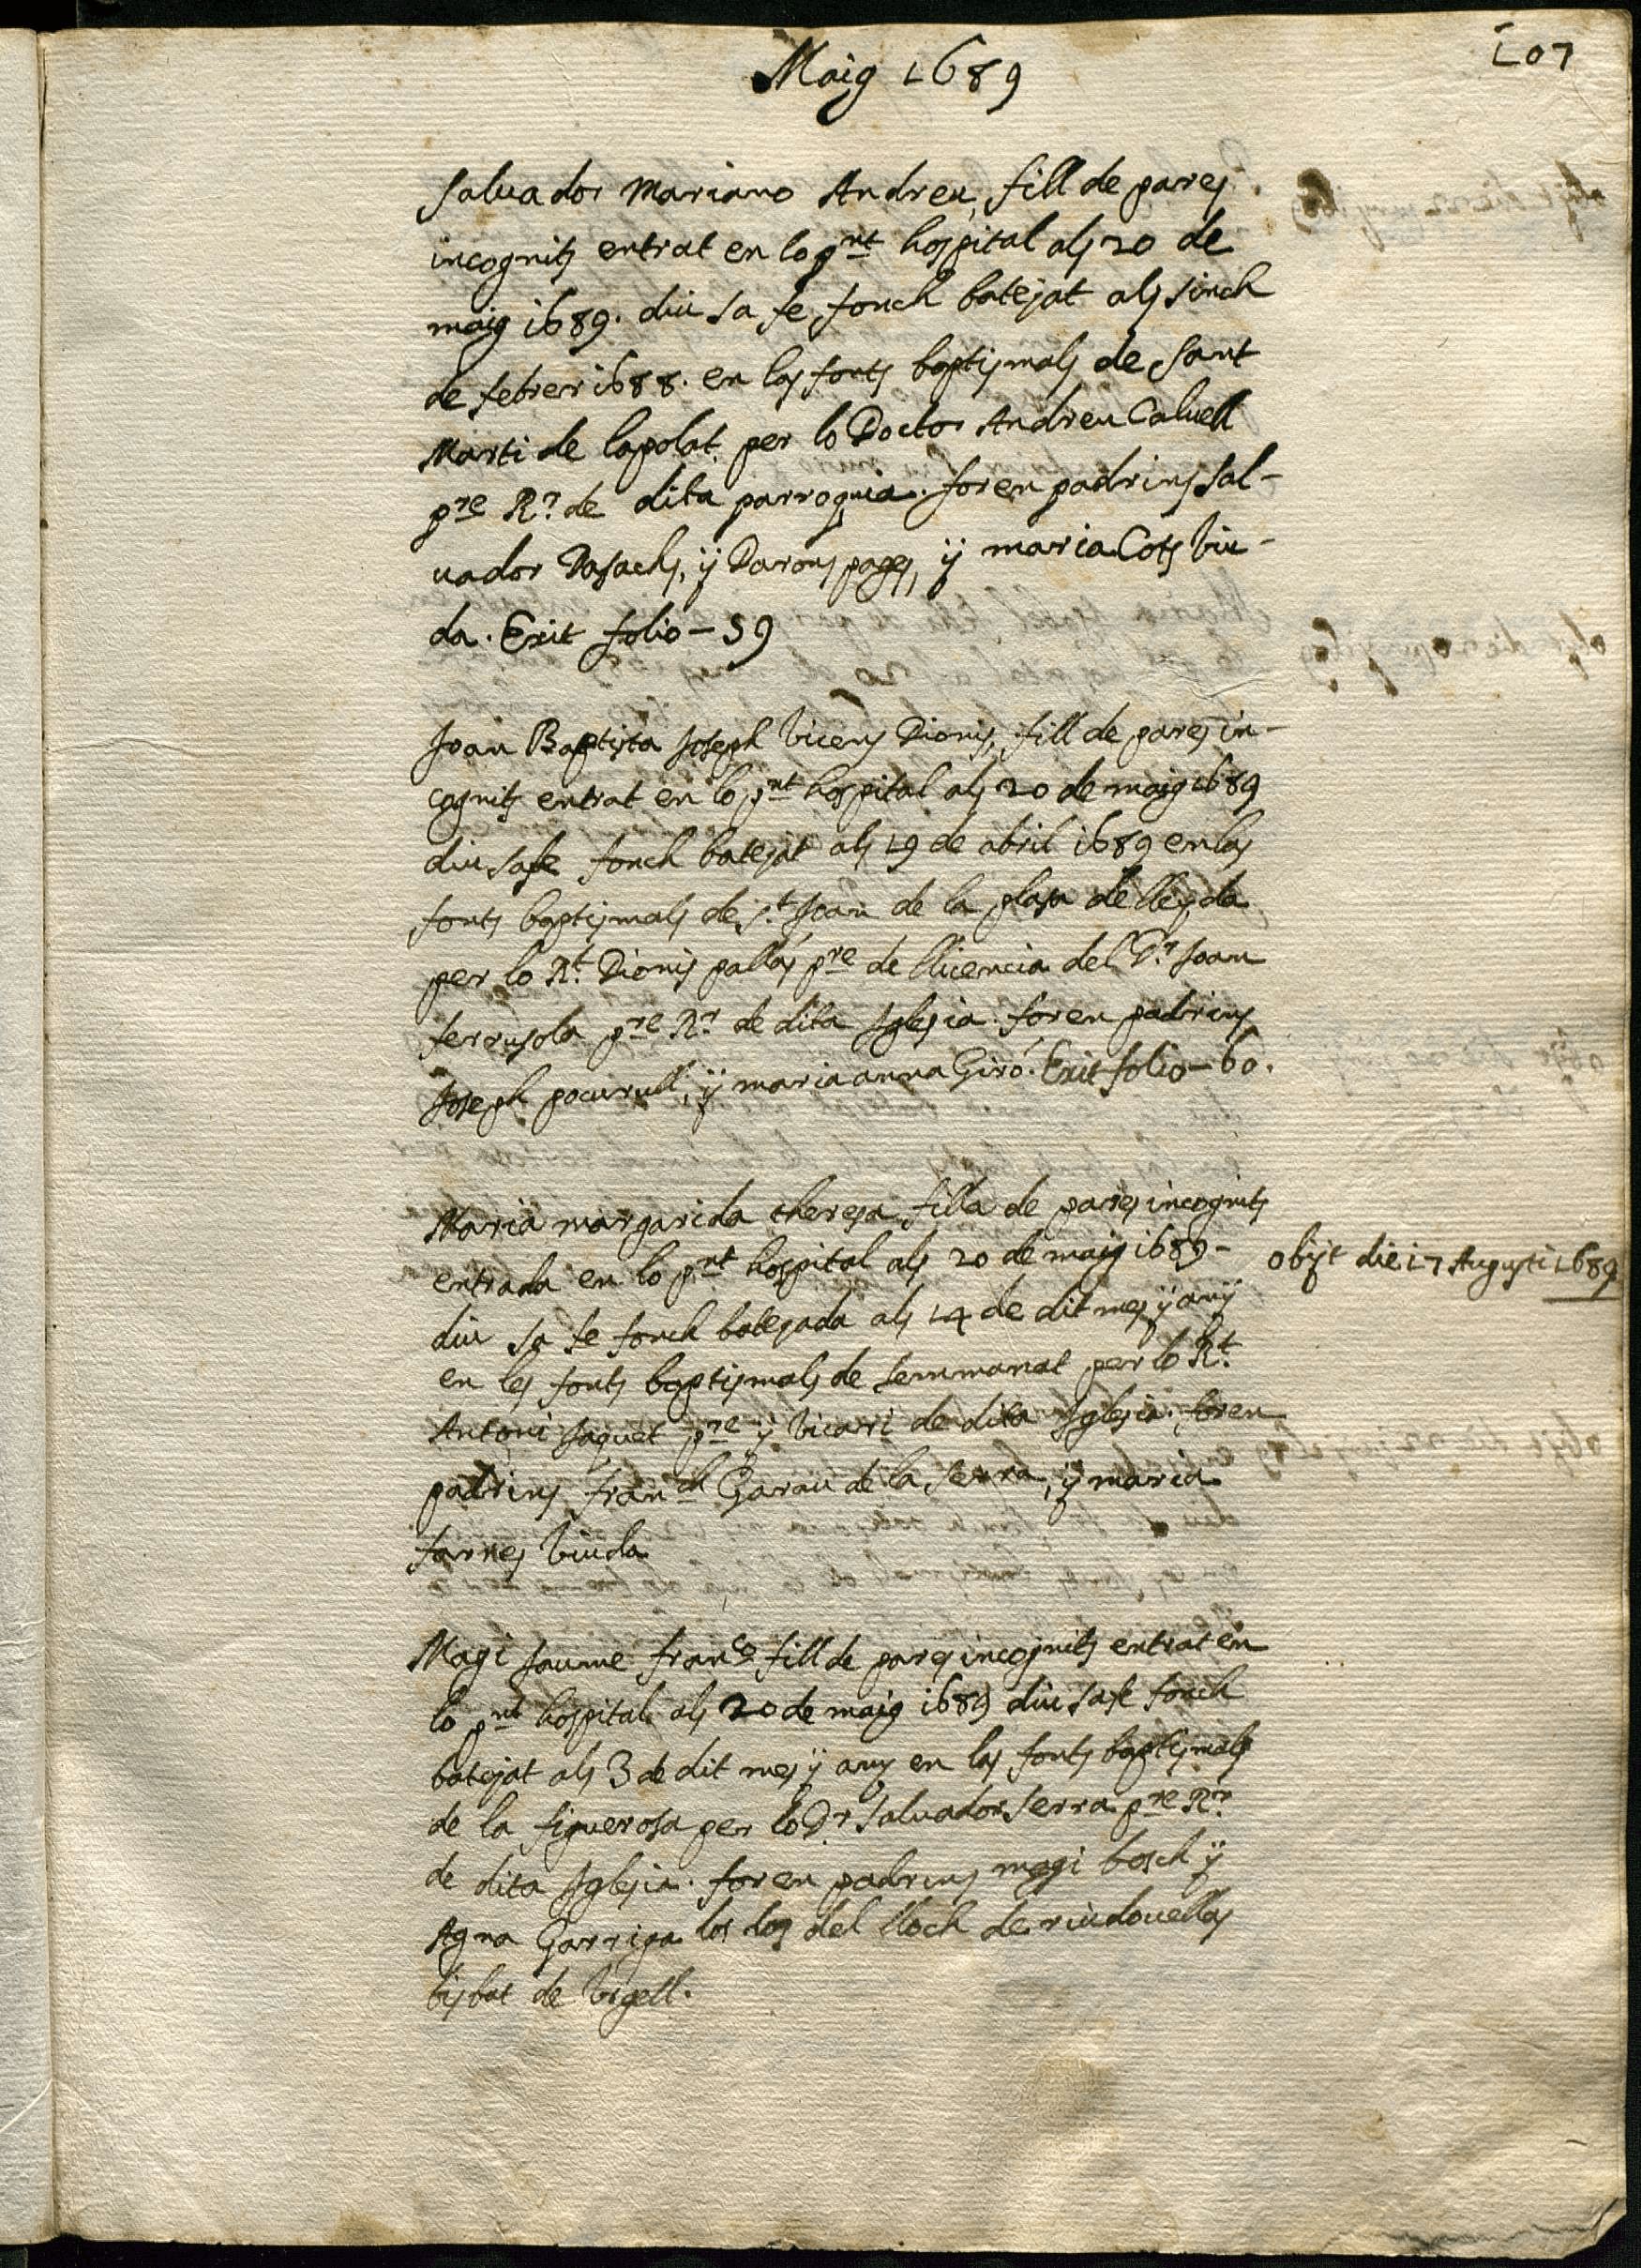 107
Maig 1689
Saluador Mariano Andreu, fill de pares
incognits entrat en lo pnt hospital als 20 de
maig 1689. diu sa fe fonch batejat als sinch
de febrer 1688. en las fonts baptismals de Sant
Marti de lapolat per lo Doctor Andreu Caluell
pre Rr. de dita parroquia. foren padrins Sal-
uador Dasachs, ÿ Darons pages, ÿ maria Cots viu-
da. Exit folio - 59
Joan Baptista Joseph Vicens Dionis, fill de pares in-
cognits entrat en lo pnt hospital als 20 de maig 1689
diu sa fe fonch batejat als 19 de abril 1689 en las
fonts baptismals de St. Joan de la plasa de lleyda
per lo Rt. Dionis pallás pre de llicencia del Dr. Joan
ferrusola pre Rr de dita Iglesia. foren padrins
Joseph pocurull, ÿ maria anna Giró. Exit folio - 60.
Maria margarida theresa filla de pares incognits
entrada en lo pnt hospital als 20 de maig 1689 -
obijt die 17 Augusti 1689
diu sa fe fonch batejada als 14 de dit mes ÿ anÿ
en les fonts baptismals de Senmanat per lo Rt.
Antoni Jaquet pre ÿ vicari de dita Iglesia. foren
padrins franch Garau de la Serra, ÿ maria
farres viuda
Magi Jaume franco fill de pares incognits entrat en
lo pnt hospital als 20 de maig 1689 diu sa fe fonch
batejat als 3 de dit mes ÿ any en las fonts baptismals
de la figuerosa per lo Dr Saluador Serra pre Rr.
de dita Iglesia. foren padrins magi bosch ÿ
Agna Garriga los dos del lloch de riudouellas
bisbat de Vrgell.